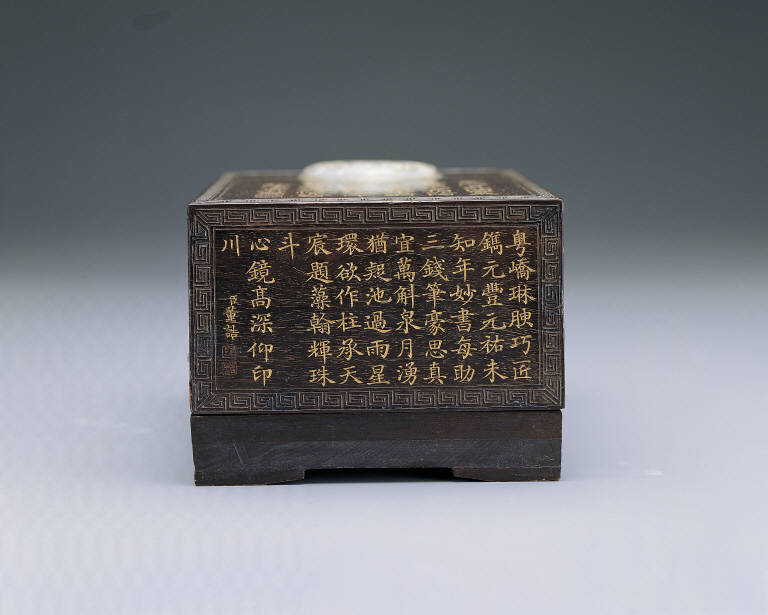 粵嶠琳腴巧匠
鐫元豐元祐未
知年妙書每助
三錢筆豪思真
宜萬斛泉月湧
猶疑池過雨星
環欲作柱承天
宸題藻翰輝珠
斗
心鏡髙深仰印
川
臣董誥